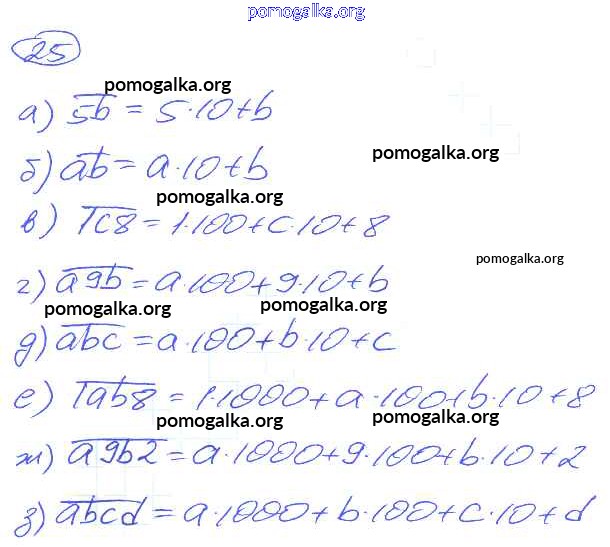 pomogalka.org
25
pomogalka.org
а) 5b = 5·10+b
pomogalka.org
б) ab = a·10+b
pomogalka.org
в) 1c8 = 1·100+c·10+8
pomogalka.org
г) a9b = a·100+9·10+b
pomogalka.org pomogalka.org
д) abc = a·100+b·10+c
е) 1ab8 = 1·1000+a·100+b·10+8
pomogalka.org pomogalka.org
ж) a9b2 = a·1000+9·100+b·10+2
pomogalka.org pomogalka.org
з) abcd = a·1000+b·100+c·10+d